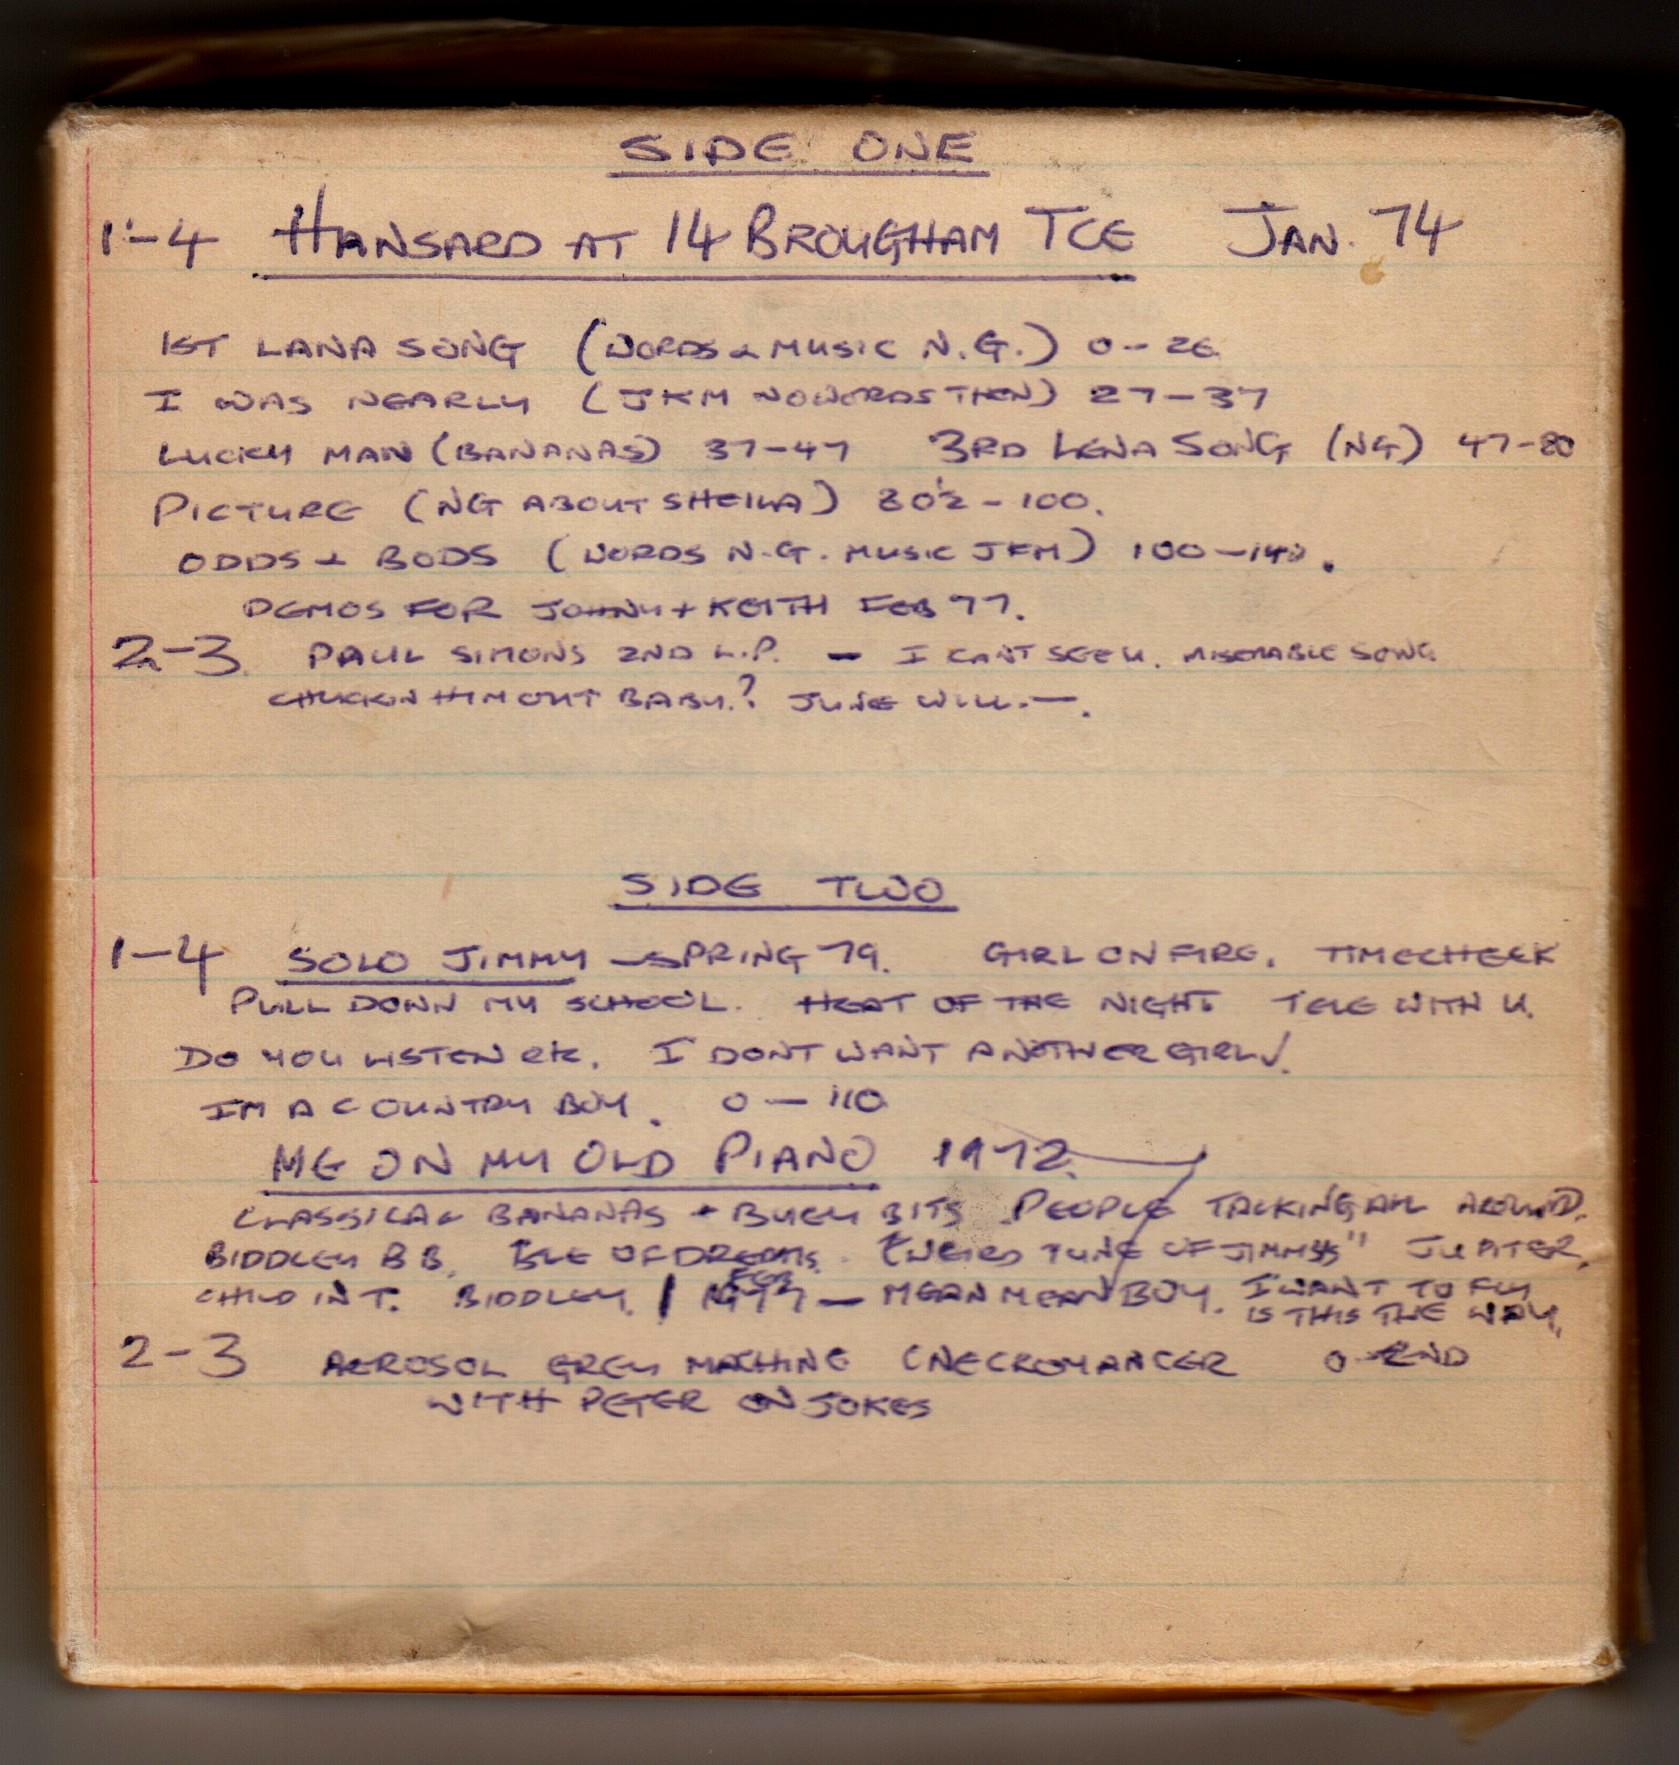 SIDE ONE
1-4 HANSARD AT 14 BROUGHAM TCE JAN. 74
1ST LANA SONG (WORDS & MUSIC N.G.) 0-26
I WAS NEARLY (JKM NO WORDS THEN) 27-37
LUCKY MAN (BANANAS) 37-47 3RD LENA SONG (NG) 47-80
PICTURE (NG ABOUT SHEILA) 80½-100.
ODDS & BODS (WORDS N.G. MUSIC JKM) 100-140.
DEMOS FOR JOHNY + KEITH FEB 77.
2-3 PAUL SIMONS 2ND L.P. - I CANT SEE U. MISERABLE SONG
CHUCKIN HIM OUT BABY.? JUNE WILL.-.
SIDE TWO
1-4 SOLO JIMMY - SPRING 79. GIRL ON FIRE. TIMECHECK
PULL DOWN MY SCHOOL. HEAT OF THE NIGHT TELE WITH U.
DO YOU LISTEN etc. I DONT WANT ANOTHER GIRL.
IM A COUNTRY BOY. 0-110
ME ON MY OLD PIANO 1972.
CLASSICAL BANANAS + BITS PEOPLE TALKING ALL AROUND.
BIDDLEY B B. ISLE OF DREAMS. (WEIRD TUNE OF JIMMYS" JUPITER.
CHILD IN T. BIDDLEY. / FEB 1977 - MEAN MEAN BOY. I WANT TO FLY
IS THIS THE WAY.
2-3 AEROSOL GREY MACHINE (NECROMANCER 0-END
WITH PETER ON JOKES